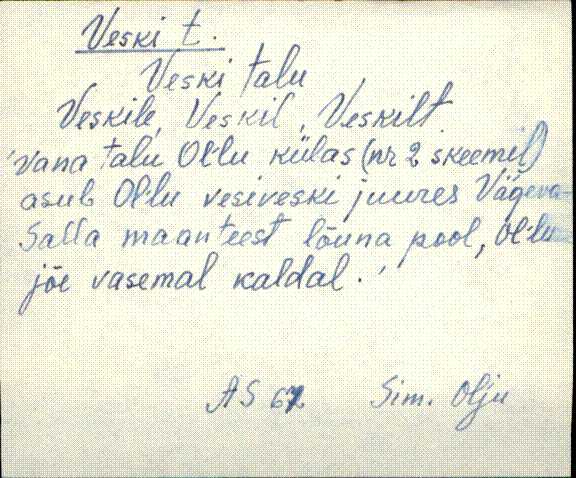 Veski t.
Veski talu
Veskile, Veskil, Veskilt
'vana talu Ollu külas (nr 2 skeemil)
asub Ollu vesiveski juures Vägeva-
Salla maanteest lõuna pool, Ollu
jõe vasemal kaldal.'
AS 67 Sim. Olju